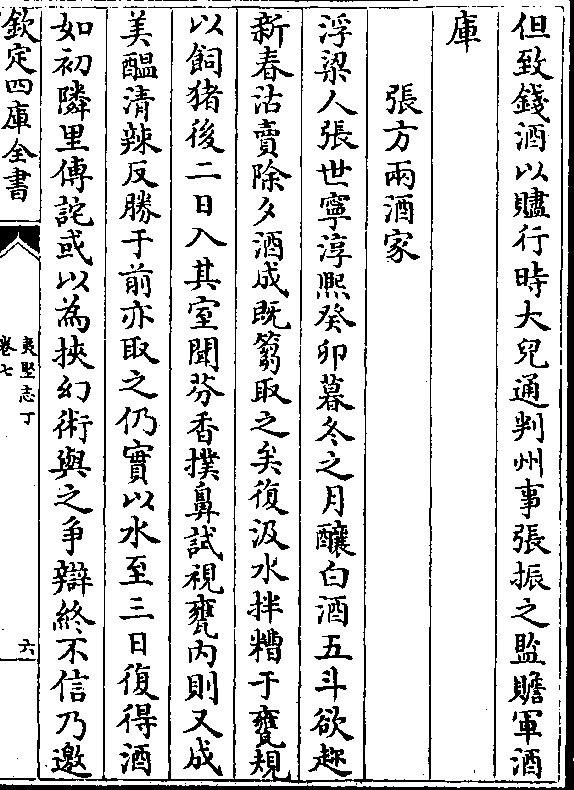 但致錢酒以贐行時大兒通判州事張振之監贍軍酒
庫
張方兩酒家
浮梁人張世寧淳熙癸卯暮冬之月釀白酒五斗欲趂
新春沽賣除夕酒成既篘取之矣復汲水拌糟于甕規
以飼猪後二日入其室聞芬香撲鼻試視甕内則又成
美醖清辣反勝于前亦取之仍實以水至三日復得酒
如初隣里傳詫或以為挾幻術與之争辯終不信乃邀
欽定四庫全書
夷堅志丁
卷七
六